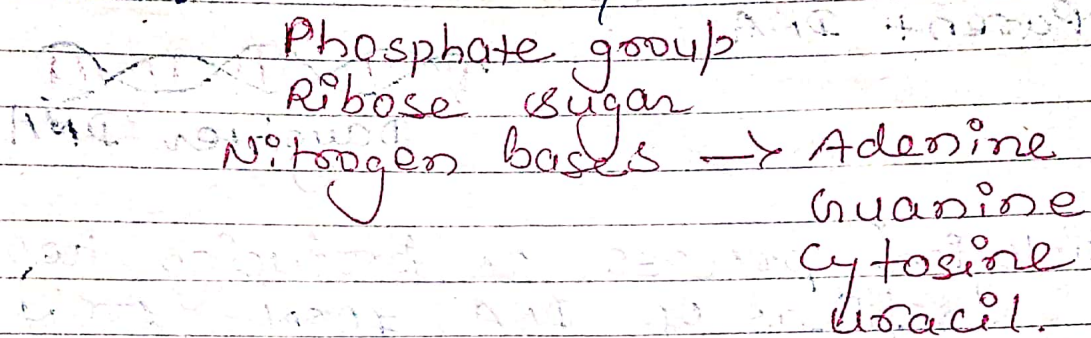 Phosphate group
Ribose sugar
Nitrogen bases → Adenine
Guanine
Cytosine
Uracil.